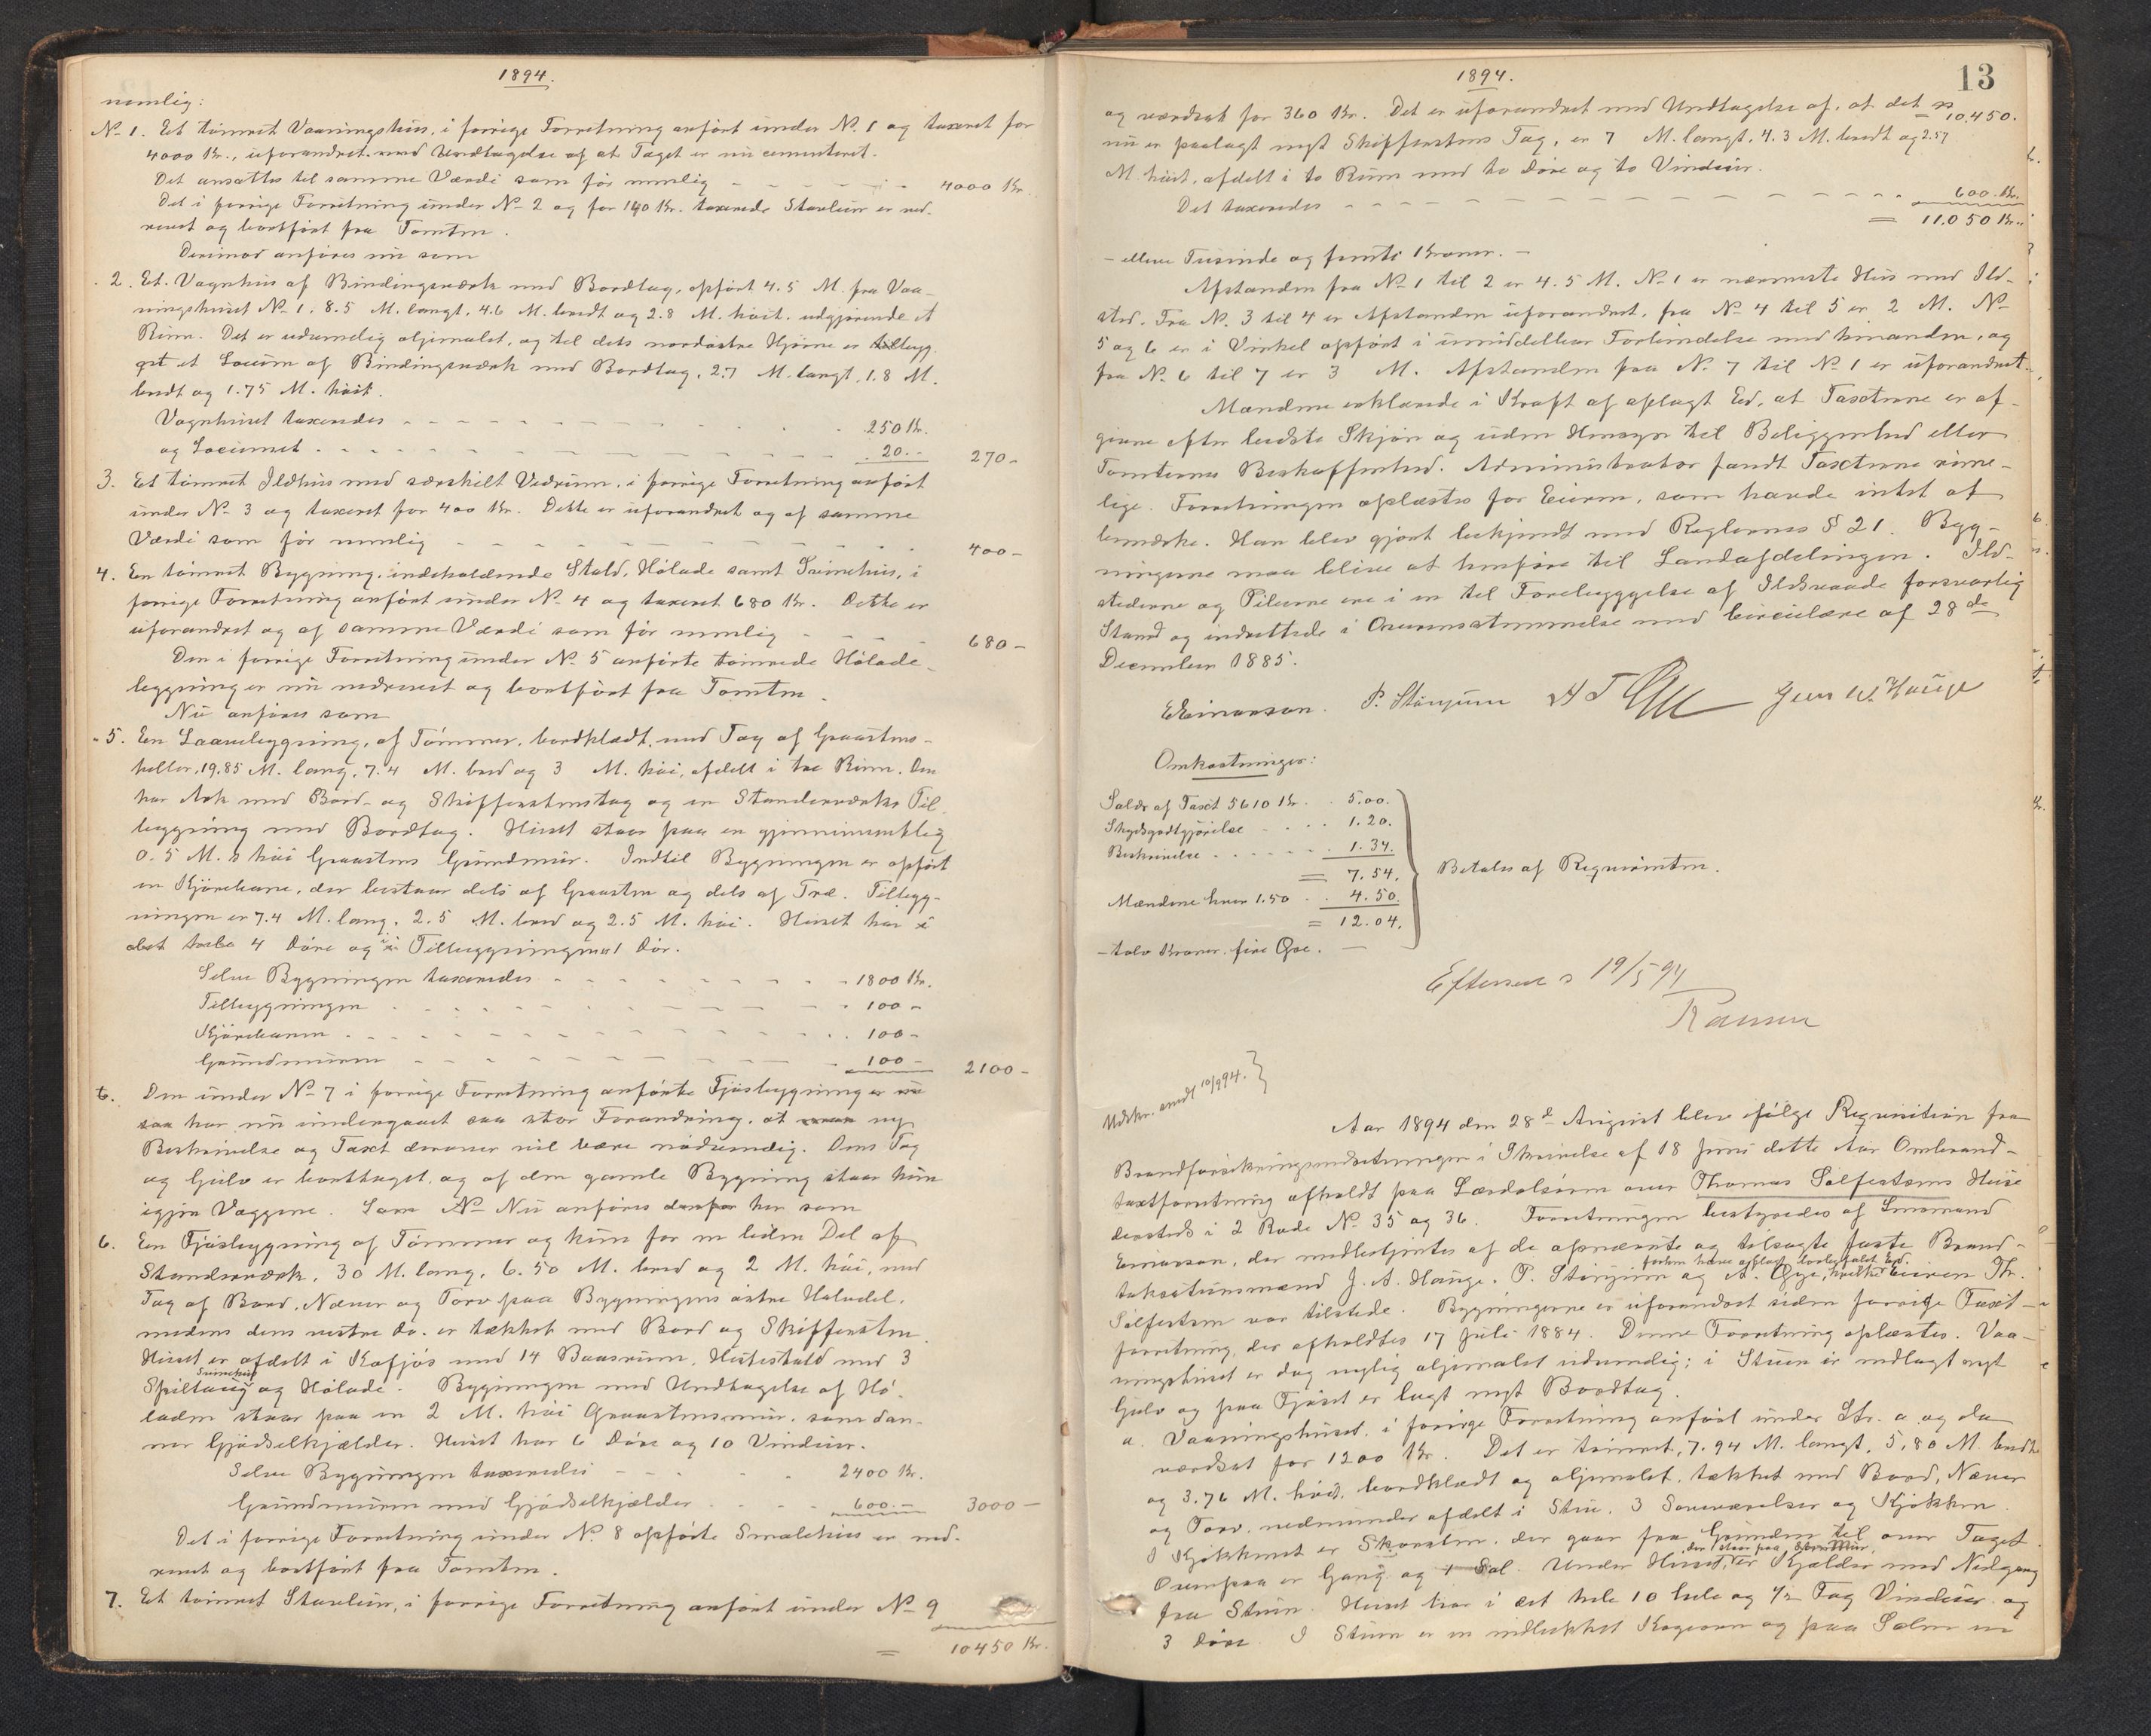 1894.
nemlig:
No 1. Et tømret Vaaningshus, i forrige Forretning anført under No 1 og taxeret for
4000 Kr., uforandret med Undtagelse af at Taget er nu cementeret.
Det ansættes til samme Værdi som før nemlig - - - - - 4000 Kr.
Det i forrige Forretning under No 2 og for 140 Kr. taxerede Stavbuur er ned-
revet og bortført fra Tomten.
Derimod anføres nu som
2. Et Vognhus af Bindingsværk med Bordtag, opført 4.5 M. fra Vaa-
ningshuset No 1, 8.5 M. langt, 4.6 M. bredt og 2.8 M. høit, udgjørende et
Rum. Det er udvendig oljemalet, og til dets nordøstre Hjørne er tilbygg
get et Locum af Bindingsværk med Bordtag, 2.7 M. langt, 1.8 M.
bredt og 1.75 M. høit.
Vognhuset taxeredes - - - - - 250 Kr.
og Locumet - - - - - 20.- 270-
3. Et tømret Ildhus med særskilt Vedrum, i forrige Forretning anført
under No 3 og taxeret for 400 Kr. Dette er uforandret og af samme
Værdi som før nemlig - - - - - 400-
4. En tømret Bygning, indeholdende Stald, Hølade samt Svinehus, i
forrige Forretning anført under No 4 og taxeret 680 Kr. Dette er
uforandret og af samme Værdi som før nemlig - - - 680-
Den i forrige Forretning under No 5 anførte tømrede Hølade-
bygning er nu nedrevet og bortført fra Tomten.
Nu anføres som
5. En Laavebygning, af Tømmer, bordklædt, med Tag af Graastens-
heller, 19.85 M. lang, 7.4 M. bred og 3 M. høi, afdelt i tre Rum. Den
har Ark med Bord- og Skifferstenstag og en Standerværks Til
bygning med Bordtag. Huset staar paa en gjennemsnitlig
0.5 M.s høi Graastens Grundmur. Indtil Bygningen er opført
en Kjørebane, der bestaar dels af Graasten og dels af Træ. Tilbyg-
ningen er 7.4 M. lang, 2.5 M. bred og 2.5 M. høi. Huset har i
det hele 4 Døre og i Tilbygningen 1 Dør.
Selve Bygningen taxeredes - - - - - 1800 Kr.
Tilbygningen - - - - - 100-
Kjørebanen - - - - - 100-
Grundmuren - - - - - 100- 2100-
6. Den under No 7 i forrige Forretning anførte Fjøsbygning er nu
saa har nu undergaaet saa stor Forandring, at man ny
Beskrivelse og Taxt derover vil være nødvendig. Dens Tag
og Gulv er borttaget, og af den gamle Bygning staar kun
igjen Væggene. Som No Nu anføres derfor her som
6. En Fjøsbygning af Tømmer og kun for en liden Del af
Standerværk, 30 M. lang, 6.50 M. bred og 2 M. høi, med
Tag af Bord, Næver og Torv paa Bygningens østre Halvdel,
medens dens vestre do. er tækket med Bord og Skiffersten.
Huset er afdelt i Kofjøs med 14 Baasrum, Hestestald med 3
Spiltaug Svinehus og Hølade. Bygningen med Undtagelse af Hø-
laden staar paa en 2 M. høi Graastensmur, som dan-
ner Gjødselkjælder. Huset har 6 Døre og 10 Vinduer.
Selve Bygningen taxeredes - - - - 2400 Kr.
Grundmuren med Gjødselkjælder - - - - 600.- 3000-
Det i forrige Forretning under No 8 opførte Smalehus er ned-
revet og bortført fra Tomten.
7. Et tømret Stavbuur, i forrige Forretning anført under No 9
= 10450 Kr.
1894.
13
og værdsat for 360 Kr. Det er uforandret med Undtagelse af, at det = 10,450.
nu er paalagt nyt Skifferstens Tag, er 7 M. langt, 4.3 M. bredt og 2.57
M. høit, afdelt i to Rum med to Døre og to Vinduer.
Det taxeredes - - - - - 600. Kr.
= 11,050 Kr.
- elleve Tusinde og femti Kroner. -
Afstanden fra No 1 til 2 er 4.5 M. No 1 er nærmeste Hus med Ild-
sted. Fra No. 3 til 4 er Afstanden uforandret, fra No 4 til 5 er 2 M. No
5 og 6 er i Vinkel opført i umiddelbar Forbindelse med hinanden, og
fra No. 6 til 7 er 3 M. Afstanden fra No. 7 til No 1 er uforandret.
Mændene erklærede i Kraft af aflagt Ed, at Taxterne er af-
givne efter bedste Skjøn og uden Hensyn til Beliggenhed eller
Tomternes Beskaffenhed. Administrator fandt Taxterne rime-
lige. Forretningen oplæstes for Eieren, som havde intet at
bemærke. Han blev gjort bekjendt med Reglernes § 21. Byg-
ningerne maa blive at henføre til Landafdelingen. Ild-
stederne og Piberne ere i en til Forebyggelse af Ildsvaade forsvarlig
Stand og indrettede i Overensstemmelse med Circulære af 28de
December 1885.
E Einarson. P. Stønjum A T Øye Jens A. Hauge
Omkostninger:
Salær af Taxt 5610 Kr. . 5.00.
Skydsgodtgjørelse . . . . 1.20.
Beskrivelse . . . . . . 1.34.
= 7.54.
Mændene hver 1.50 . . 4.50.
= 12.04.
- tolv Kroner, fire Øre. -
Betales af Requirenten.
Efterseet 19/5 94
Udskr. sendt 10/9 94.
Aar 1894 den 28de August blev ifølge Requisition fra
Brandforsikringsindretningen i Skrivelse af 18 Juni dette Aar Ombrand-
taxtforretning afholdt paa Lærdalsøren over Thomas Sølfestsens Huse
dersteds i 2 Rode No. 35 og 36. Forretningen bestyredes af Lensmand
Einarson, der medbetjentes af de opnævnte og tilsagte faste Brand-
takstmænd J. A. Hauge, P. Stønjum og A. Øye, hvilke forhen have aflagt lovbefalet Ed. Eieren Th.
Sølfestsen var tilstede. Bygningerne er uforandret siden forrige Taxt-
forretning, der afholdtes 17 Juli 1884. Denne Forretning oplæstes. Vaa-
ningshuset er dog nylig oljemalet udvendig; i Stuen er nedlagt nyt
Gulv og paa Fjøset er lagt nyt Bordtag.
a. Vaaningshuset, i forrige Forretning anført under Ltr. a og da
værdsat for 1200 Kr. Det er tømret, 7.94 M. langt, 5,80 M. bredt
og 3.76 M. høit, bordklædt og oljemalet, tækket med Bord, Næver
og Torv, nedenunder afdelt i Stue, 3 Soveværelser og Kjøkken.
I Kjøkkenet er Skorsten, der gaar fra Grunden til over Taget.
Ovenpaa er Gang og 1 Sal. Under Huset, der staar paa Mur, er Kjælder med Nedgang
fra Stuen. Huset har i det hele 10 hele og 1/2 Fag Vinduer og
3 Døre. I Stuen er en indlukket Kogeovn og paa Salen en